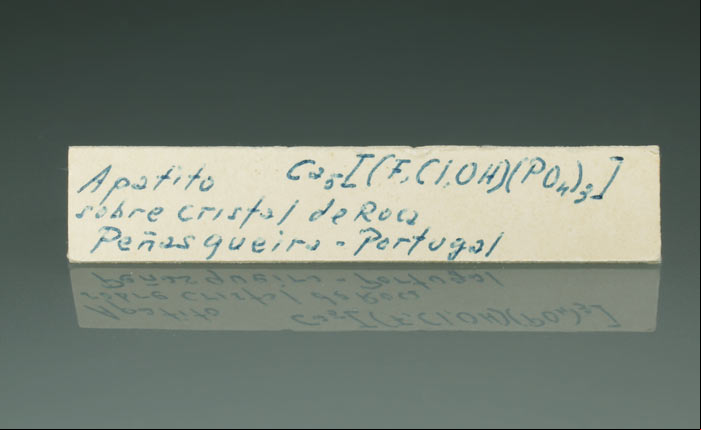 Apatito Ca₅[(F,Cl,OH)(PO₄)₃]
sobre cristal de Roca
Peñasqueira - Portugal